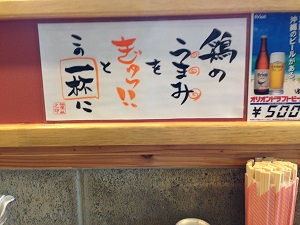 鶏の
うまみ
を
ぎゅっ!!
と
この
一杯に
Orion
沖縄の
ビールがある。
オリオンドラフトビー
¥500